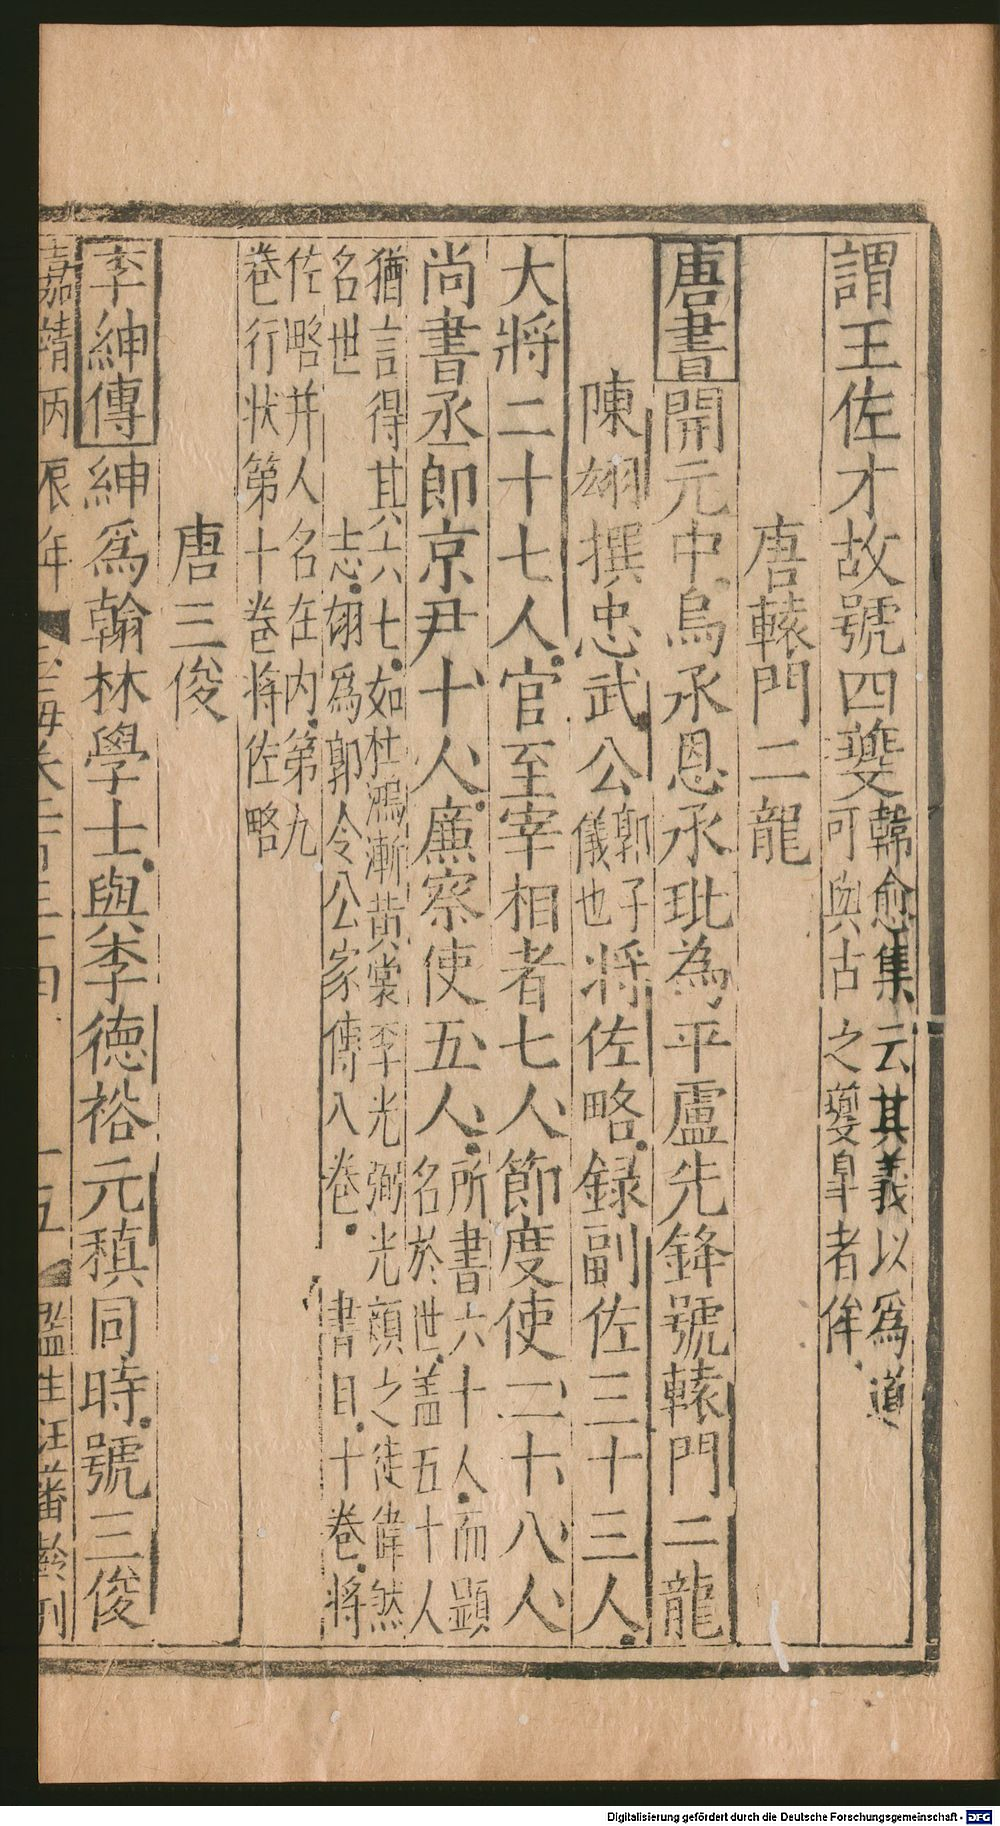 謂王佐才故號四夔韓愈集云其義以爲道可與古之夔皐者侔
唐轅門二龍
唐書開元中烏承恩承玭為平盧先鋒號轅門二龍
陳翃撰忠武公郭子儀也將佐略録副佐三十三人
大將二十七人官至宰相者七人節度使二十八人
尚書丞郎京尹十人廉察使五人所書六十人而顯名於世蓋五十人
猶言得其六七如杜鴻漸黃裳李光弼光顔之徒偉然名世 志翃爲郭令公家傳八卷 書目十卷將
佐略并人名在内第九卷行状第十卷將佐略
唐三俊
李紳傳紳爲翰林學士與李德裕元稹同時號三俊
嘉靖丙辰年 玉海卷一百三十四 十五 監生汪蕃齡刊
Digitalisierung gefördert durch die Deutsche Forschungsgemeinschaft - DFG